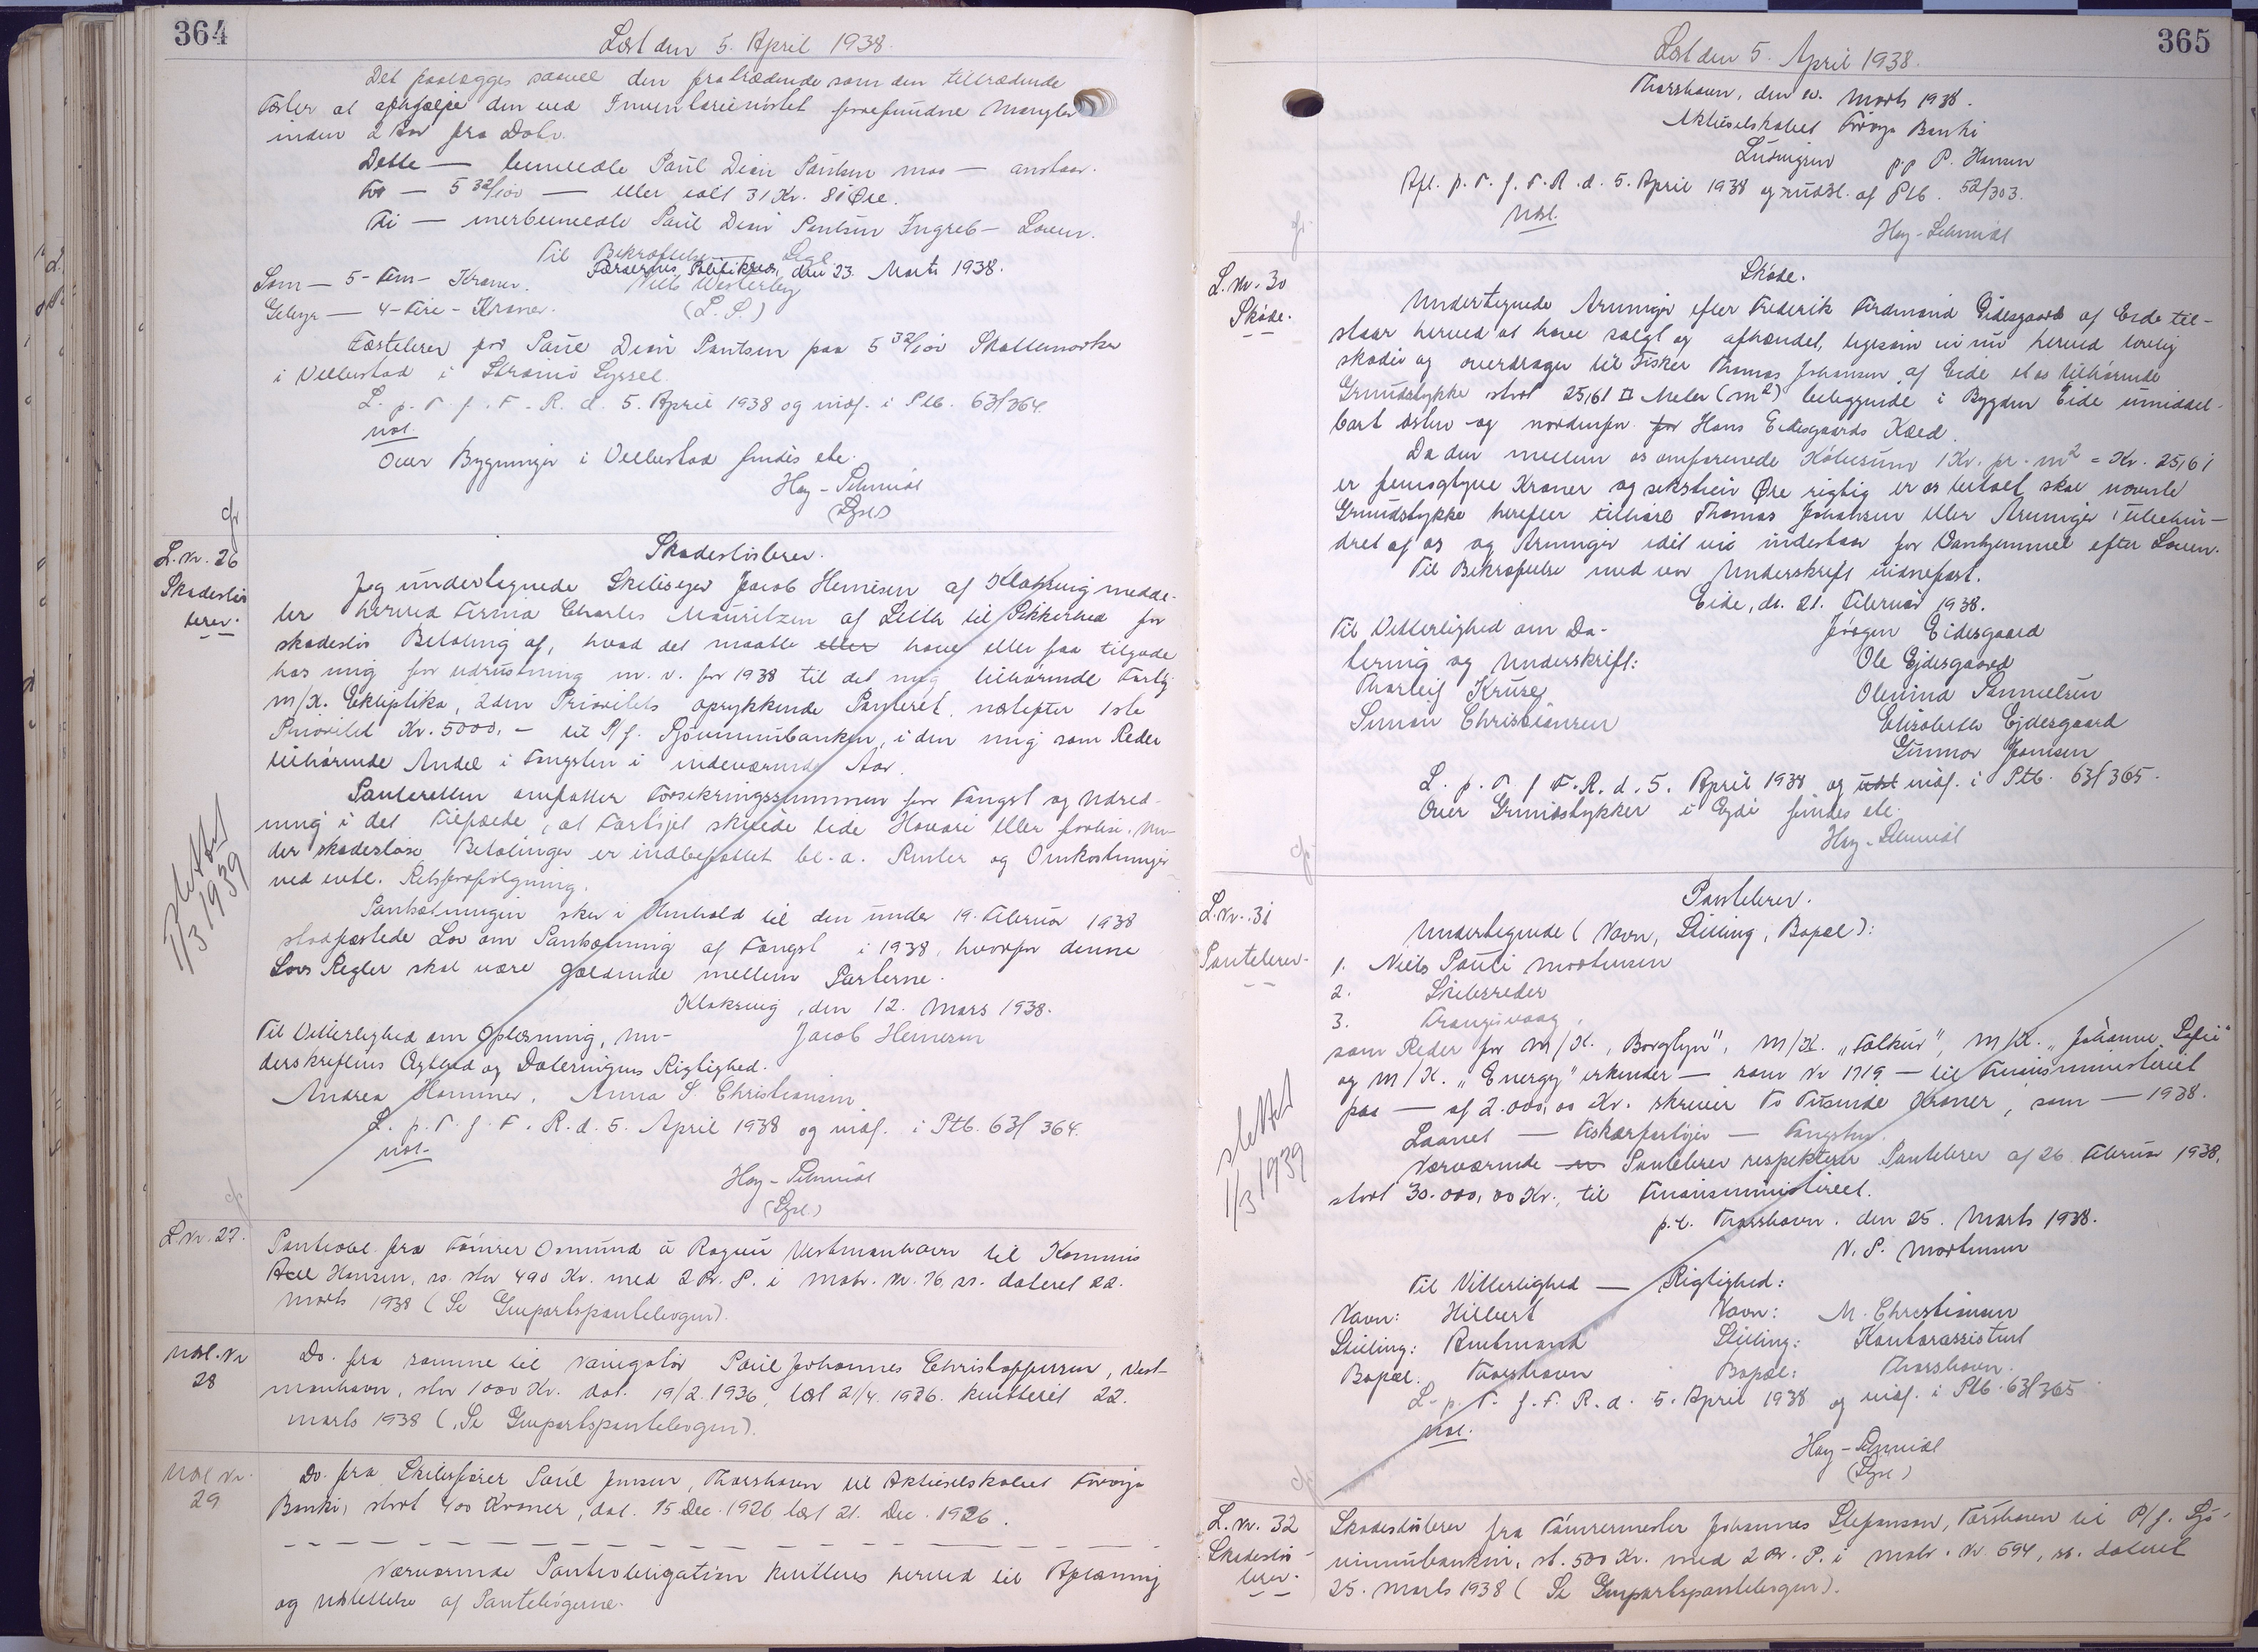 364
Læst den 5. April 1938.
Det paalægges saavel den fratrædende som den tiltrædende
Fæster at afhjælpe den ved Inventariesynet forefundne Mangler
inden 2 Aar fra Dato.
Dette — bemeldte Paul Dion Poulsen maa — anstaar.
For — 5 32/100 — eller ialt 31 Kr. 81 Øre.
Ti — merbemeldte Paul Dion Poulsen Ingreb — Loven.
Til Bekræftelse — Segl
Færøernes Politikreds, den 23. Marts 1938.
Som — 5 - Fem - Kroner. Niels Westerby
Gebyr — 4 - Fire - Kroner. (L. S.)
Fæstebrev for Paul Dion Poulsen paa 5 32/100 Skattemarker
i Velbestad i Strømø Syssel.
L. p. T. f. F. R. d. 5. April 1938 og indf. i Ptb. 63/364.
udsl.
Over Bygninger i Velbestad findes ete.
Hoy-Schmidt
L. Nr. 26
Skadesløs
brev.
Skadesløsbrev.
Jeg undertegnede Skibsejer Jacob Hemesen af Klaksvig medde-
ler herved Firma Charles Mouritzen af Leith til Sikkerhed for
skadesløs Betaling af, hvad det maatte eller have eller faa tilgode
hos mig for udrustning m. v. for 1938 til det mig tilhørende Fartøj
M/K. Ekliptika, 2den Prioritets oprykkende Panteret, næstefter 1ste
Prioritet Kr. 5000,- til P/f. Sjóvinnubankin, i den mig som Reder
tilhørende Andel i Fangsten i indeværende Aar.
Panteretten omfatter Forsikringssummen for Fangst og Udred-
ning i det Tilfælde, at Fartøjet skulde lide Havari eller forlise. Un-
der skadesløse Betalinger er indbefattet bl. a. Renter og Omkostninger
ved evtl. Retsforfølgning.
Pantsætningen sker i Henhold til den under 19. Februar 1938
stadfæstede Lov om Pantsætning af Fangst i 1938, hvorfor denne
Lovs Regler skal være gældende mellem Parterne.
Klaksvig, den 12. Mars 1938.
Til Vitterlighed om Oplæsning, Un- Jacob Hemesen
derskriftens Ægthed og Dateringens Rigtighed.
Andrea Hammer. Anna S. Christiansen
L. p. T. f. F. R. d. 5. April 1938 og indf. i Ptb. 63/364.
udsl.
Hoy-Schmidt
slettet
1/3 1939
L. Nr. 27.
Pantobl. fra Tómrer Osmund á Rógvu Vestmanhavn til Kommis
Axel Hansen, ss. stor 490 Kr. med 2 Pr. P. i Matr. Nr. 76, ss. dateret 22.
Marts 1938 (Se Genpartspantebogen).
Udsl. Nr
28
Do. fra samme til Navigatør Poul Johannes Christoffersen, Vest-
manhavn, stor 1000 Kr. dat. 19/2. 1936, læst 21/4. 1936. kvitteret 22.
marts 1938 (Se Genpartspantebogen).
Udsl. Nr.
29
Do. fra Skibsfører Poul Jensen, Thorshavn til Aktieselskabet Føroya
Banki, stort 400 Kroner, dat. 15 Dec. 1926 læst 21. Dec. 1926.
Nærværende Pantobligation kvitteres herved til Aflæsning
og Udslettelse af Pantebøgerne.
365
Læst den 5. April 1938.
Thorshavn, den 10. Marts 1938.
Aktieselskabet Føroya Banki
Lutzen pp P. Hansen
Afl. p. T. f. F. R. d. 5. April 1938 og udsl. af Ptb. 52/303.
Udsl.
Hoy-Schmidt
L. Nr. 30
Skøde.
Skøde.
Undertegnede Arvinger efter Frederik Ferdinand Eidesgaard af Eide til-
staar herved at have solgt og afhændet, ligesom vi nu herved lovlig
skøder og overdrager til Fisker Thomas Johansen af Eide et os tilhørende
Grundstykke stort 25,61 □ Meter (m2) beliggende i Bygden Eide umiddel-
bart østen og nordenfor for Hans Eidesgaards Kæld.
Da den mellem os omforenede Købesum 1 Kr. pr. m2 = Kr. 25,61
er femogtyve Kroner og sekstien Øre rigtig er os betalt, skal nævnte
Grundstykke herefter tilhøre Thomas Johansen eller Arvinger ubehin-
dret af os og Arvinger idet vi indestaar for Vanhjemmel efter Loven.
Til Bekræftelse med vor Underskrift vidnefast.
Eide, d. 21. Februar 1938.
Til Vitterlighed om Da- Jógvan Eidesgaard
tering og Underskrift: Ole Ejdesgaard
Thorleif Kruse Olevina Samuelsen
Simon Christiansen Elisabeth Ejdesgaard
Gunnor Joensen
L. p. T. f. F. R. d. 5. April 1938 og udsl indf. i Ptb. 63/365.
Over Grundstykker i Ejde findes ete.
Hoy-Schmidt
L. Nr. 31
Pantebrev.
Pantebrev.
Undertegnede (Navn, Stilling, Bopæl):
1. Niels Pauli Mortensen
2. Skibsreder
3. Trangisvaag,
som Reder for M/K. „Borglyn", M/K. „Falkur", M/K. „Johanne Sofie"
og M/K. „Energy" erkender — som Nr 1719 — til Finansministeriet
paa — af 2.000,00 Kr. skriver To Tusinde Kroner, som — 1938.
Laanet — Fiskerfartøjer — Fangsten.
Nærværende Pantebrev respekterer Pantebrev af 26. Februar 1938,
stort 30.000,00 Kr., til Finansministeriet.
p.t. Thorshavn. den 25. Marts 1938.
N. P. Mortensen
Til Vitterlighed — Rigtighed:
Navn: Hilbert Navn: M. Christiansen
Stilling: Amtmand Stilling: Kontorassistent
Bopæl. Thorshavn Bopæl: Thorshavn.
L. p. T. f. F. R. d. 5. April 1938 og indf. i Ptb. 63/365
udsl.
Hoy-Schmidt
slettet
1/3 1939
L. Nr. 32
Skadesløs
brev.
Skadesløsbrev fra Tómrermester Johannes Stefansson, Tórshavn til P/f. Sjó-
vinnubankin, st. 500 Kr. med 2 Pr. P. i Matr. Nr. 694, ss. dateret
25. Marts 1938 (Se Genpartspantebogen).